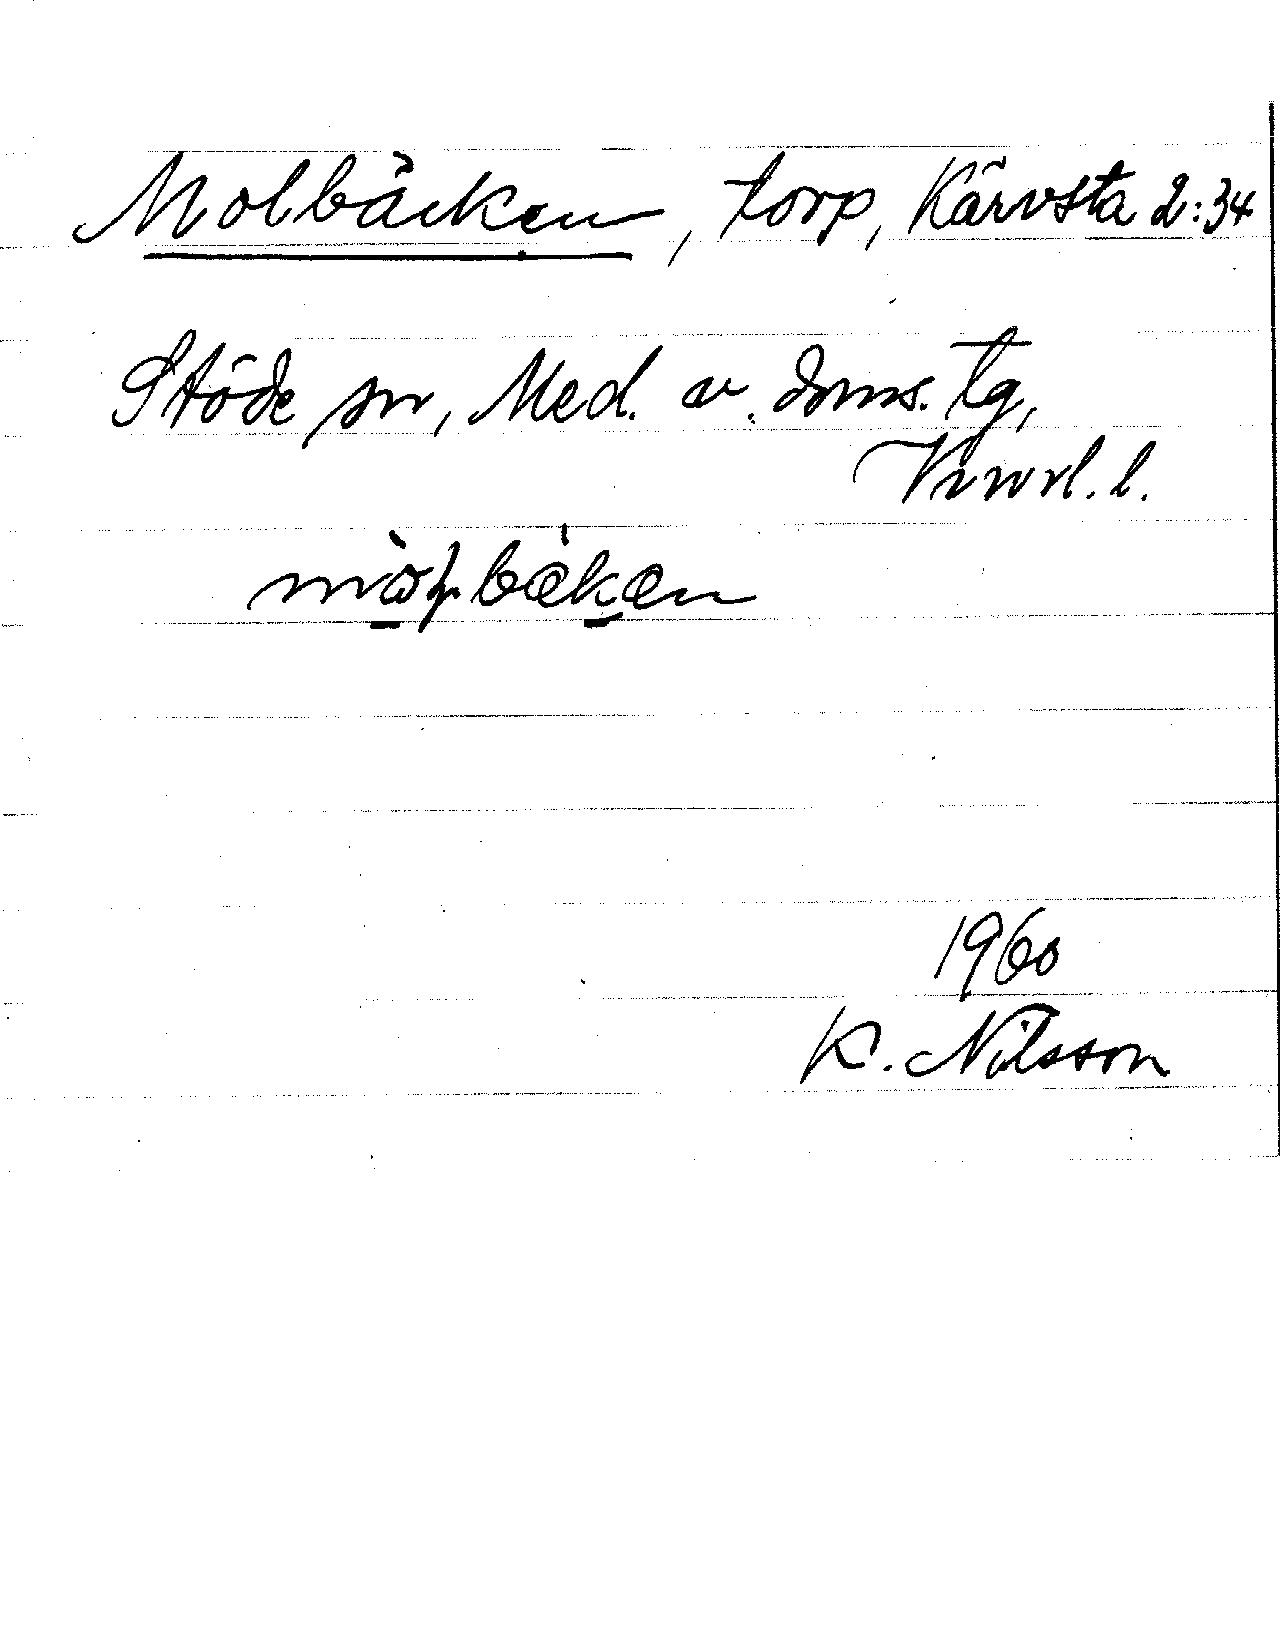 Molbäcken, torp, Kärvsta 2:34
Stöde sn, Med. v. doms. tg,
Vnorl. l.
1960
K. Nilsson